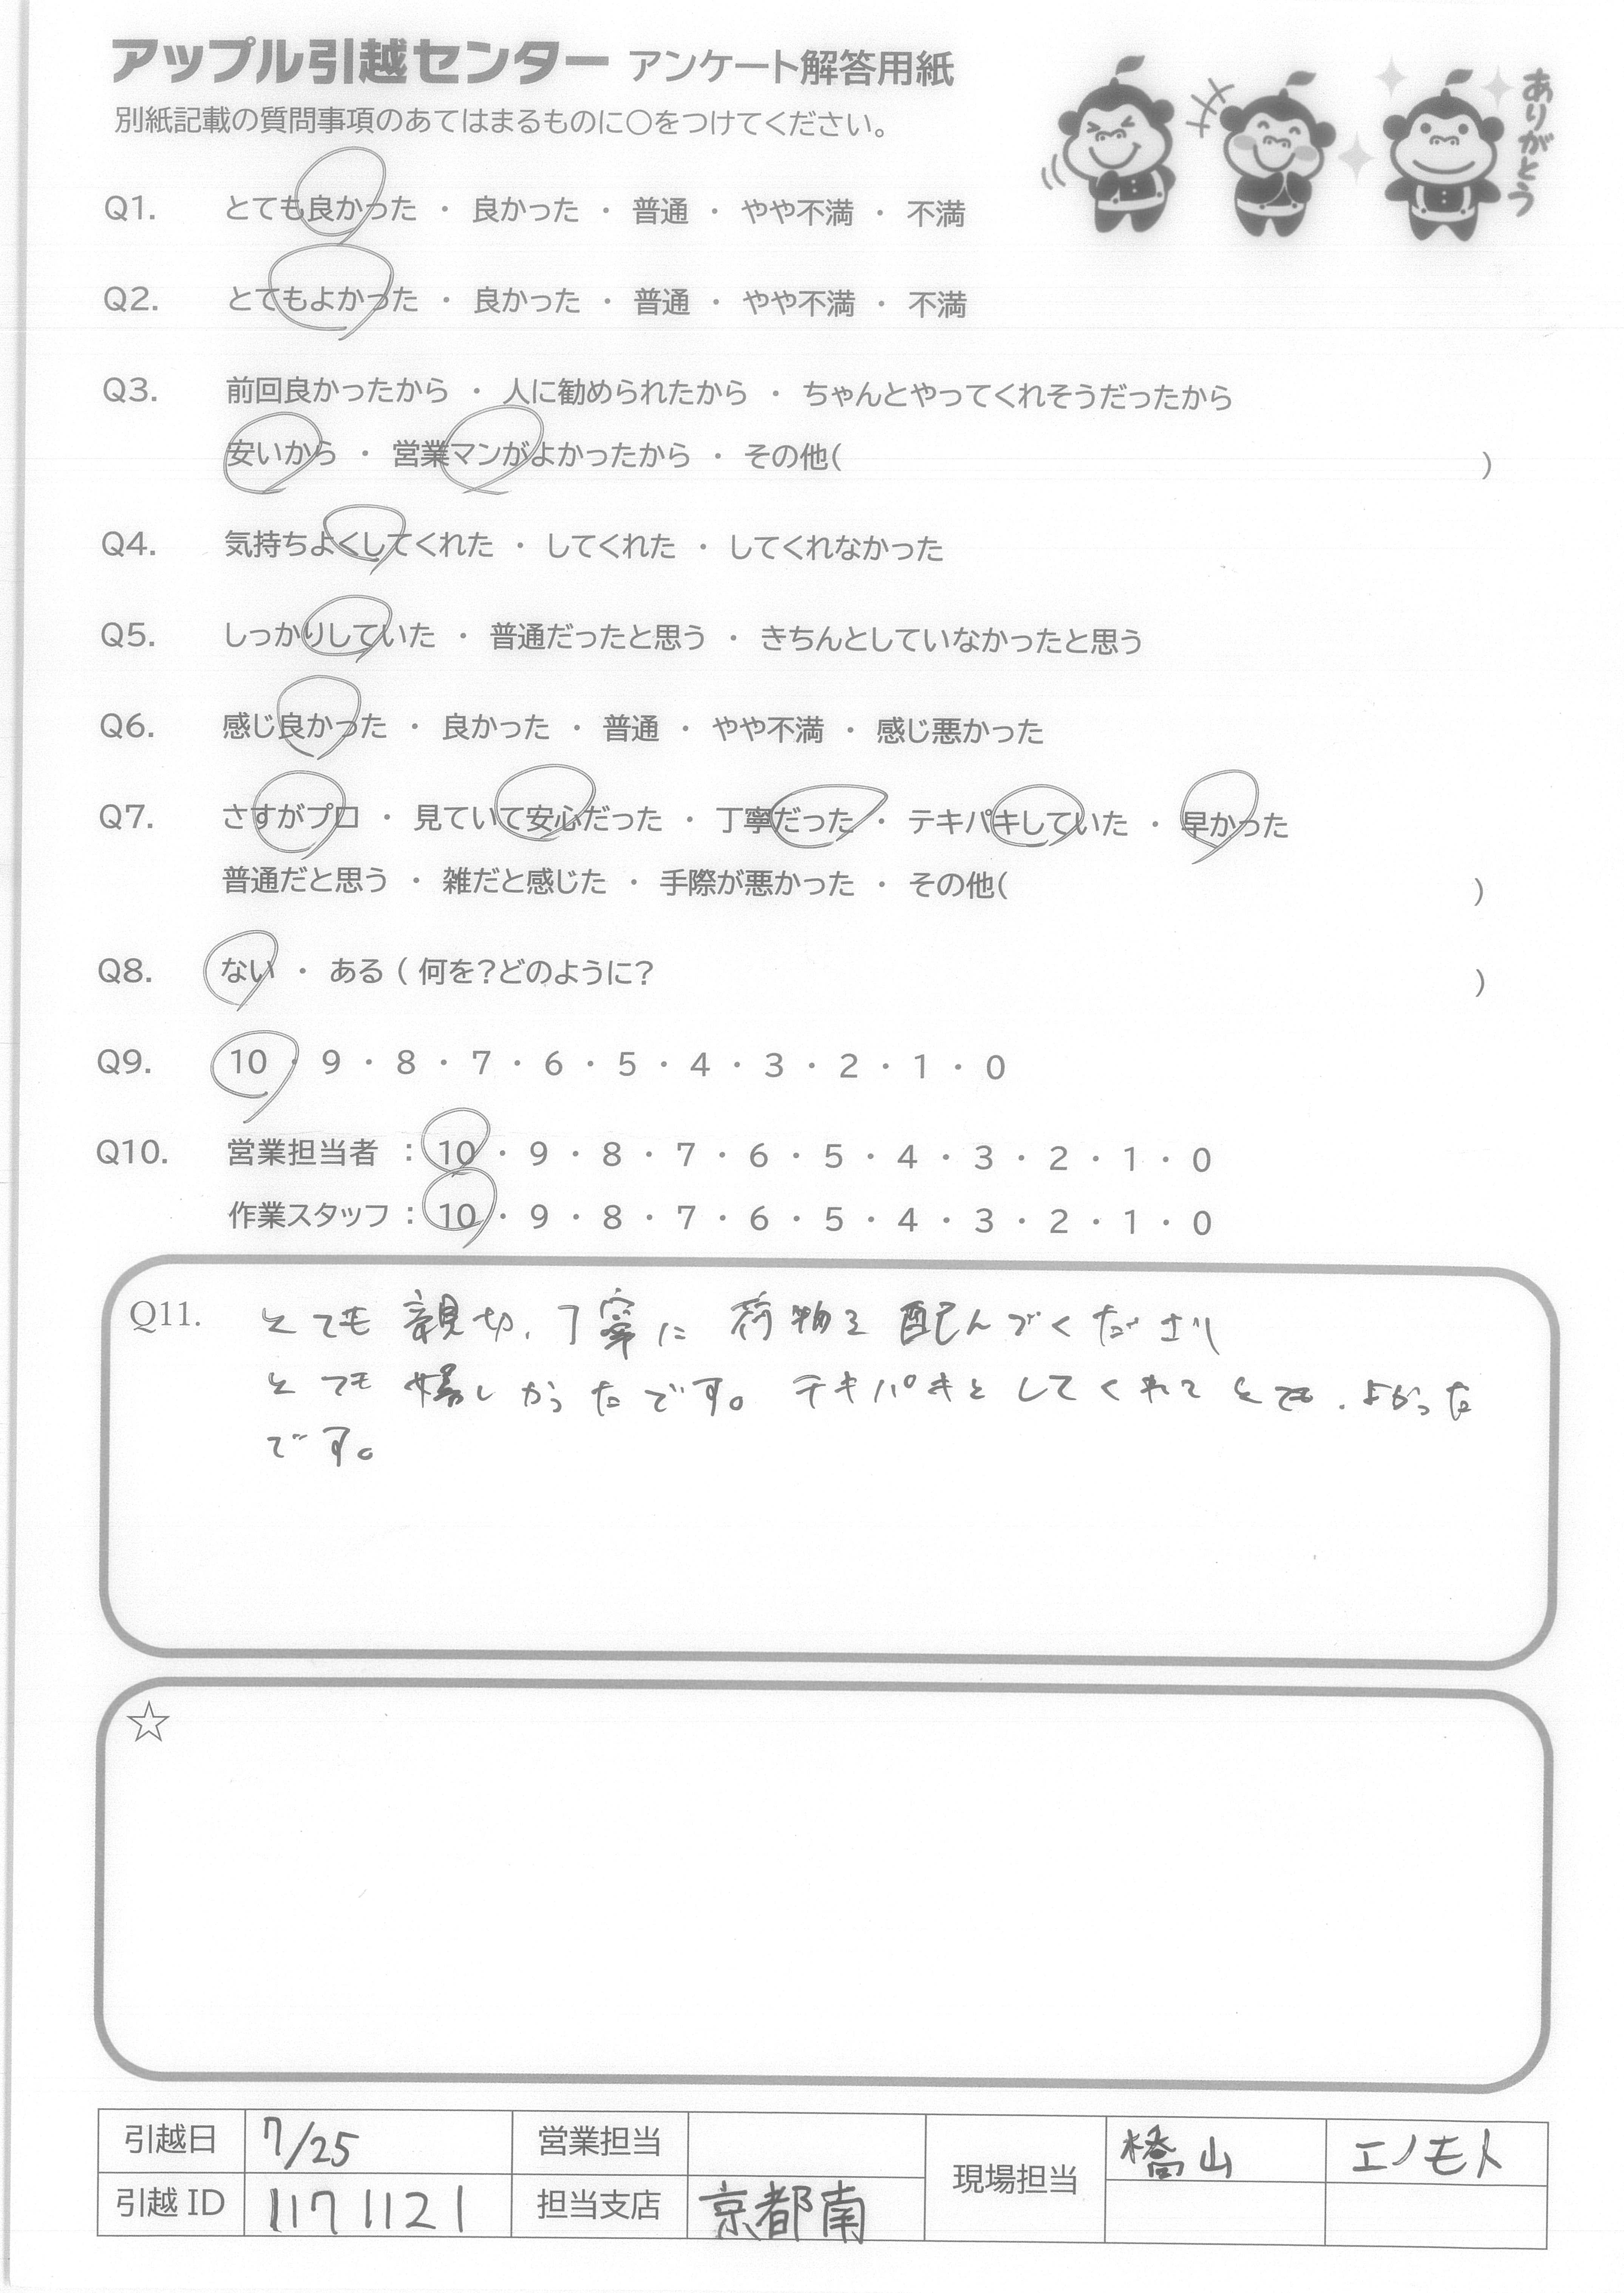 アップル引越センター アンケート解答用紙
別紙記載の質問事項のあてはまるものに○をつけてください。
ありがとう
Q1. とても良かった ・ 良かった ・ 普通 ・ やや不満 ・ 不満
Q2. とてもよかった ・ 良かった ・ 普通 ・ やや不満 ・ 不満
Q3. 前回良かったから ・ 人に勧められたから ・ ちゃんとやってくれそうだったから
安いから ・ 営業マンがよかったから ・ その他( )
Q4. 気持ちよくしてくれた ・ してくれた ・ してくれなかった
Q5. しっかりしていた ・ 普通だったと思う ・ きちんとしていなかったと思う
Q6. 感じ良かった ・ 良かった ・ 普通 ・ やや不満 ・ 感じ悪かった
Q7. さすがプロ ・ 見ていて安心だった ・ 丁寧だった ・ テキパキしていた ・ 早かった
普通だと思う ・ 雑だと感じた ・ 手際が悪かった ・ その他( )
Q8. ない ・ ある ( 何を?どのように? )
Q9. 10 ・ 9 ・ 8 ・ 7 ・ 6 ・ 5 ・ 4 ・ 3 ・ 2 ・ 1 ・ 0
Q10. 営業担当者 : 10 ・ 9 ・ 8 ・ 7 ・ 6 ・ 5 ・ 4 ・ 3 ・ 2 ・ 1 ・ 0
作業スタッフ : 10 ・ 9 ・ 8 ・ 7 ・ 6 ・ 5 ・ 4 ・ 3 ・ 2 ・ 1 ・ 0
Q11. とても親切、丁寧に荷物を配んでくださり
とても嬉しかったです。テキパキとしてくれてとても、よかった
です。
☆
引越日 7/25 営業担当 現場担当 橋山 エノモト
引越 ID 1171121 担当支店 京都南